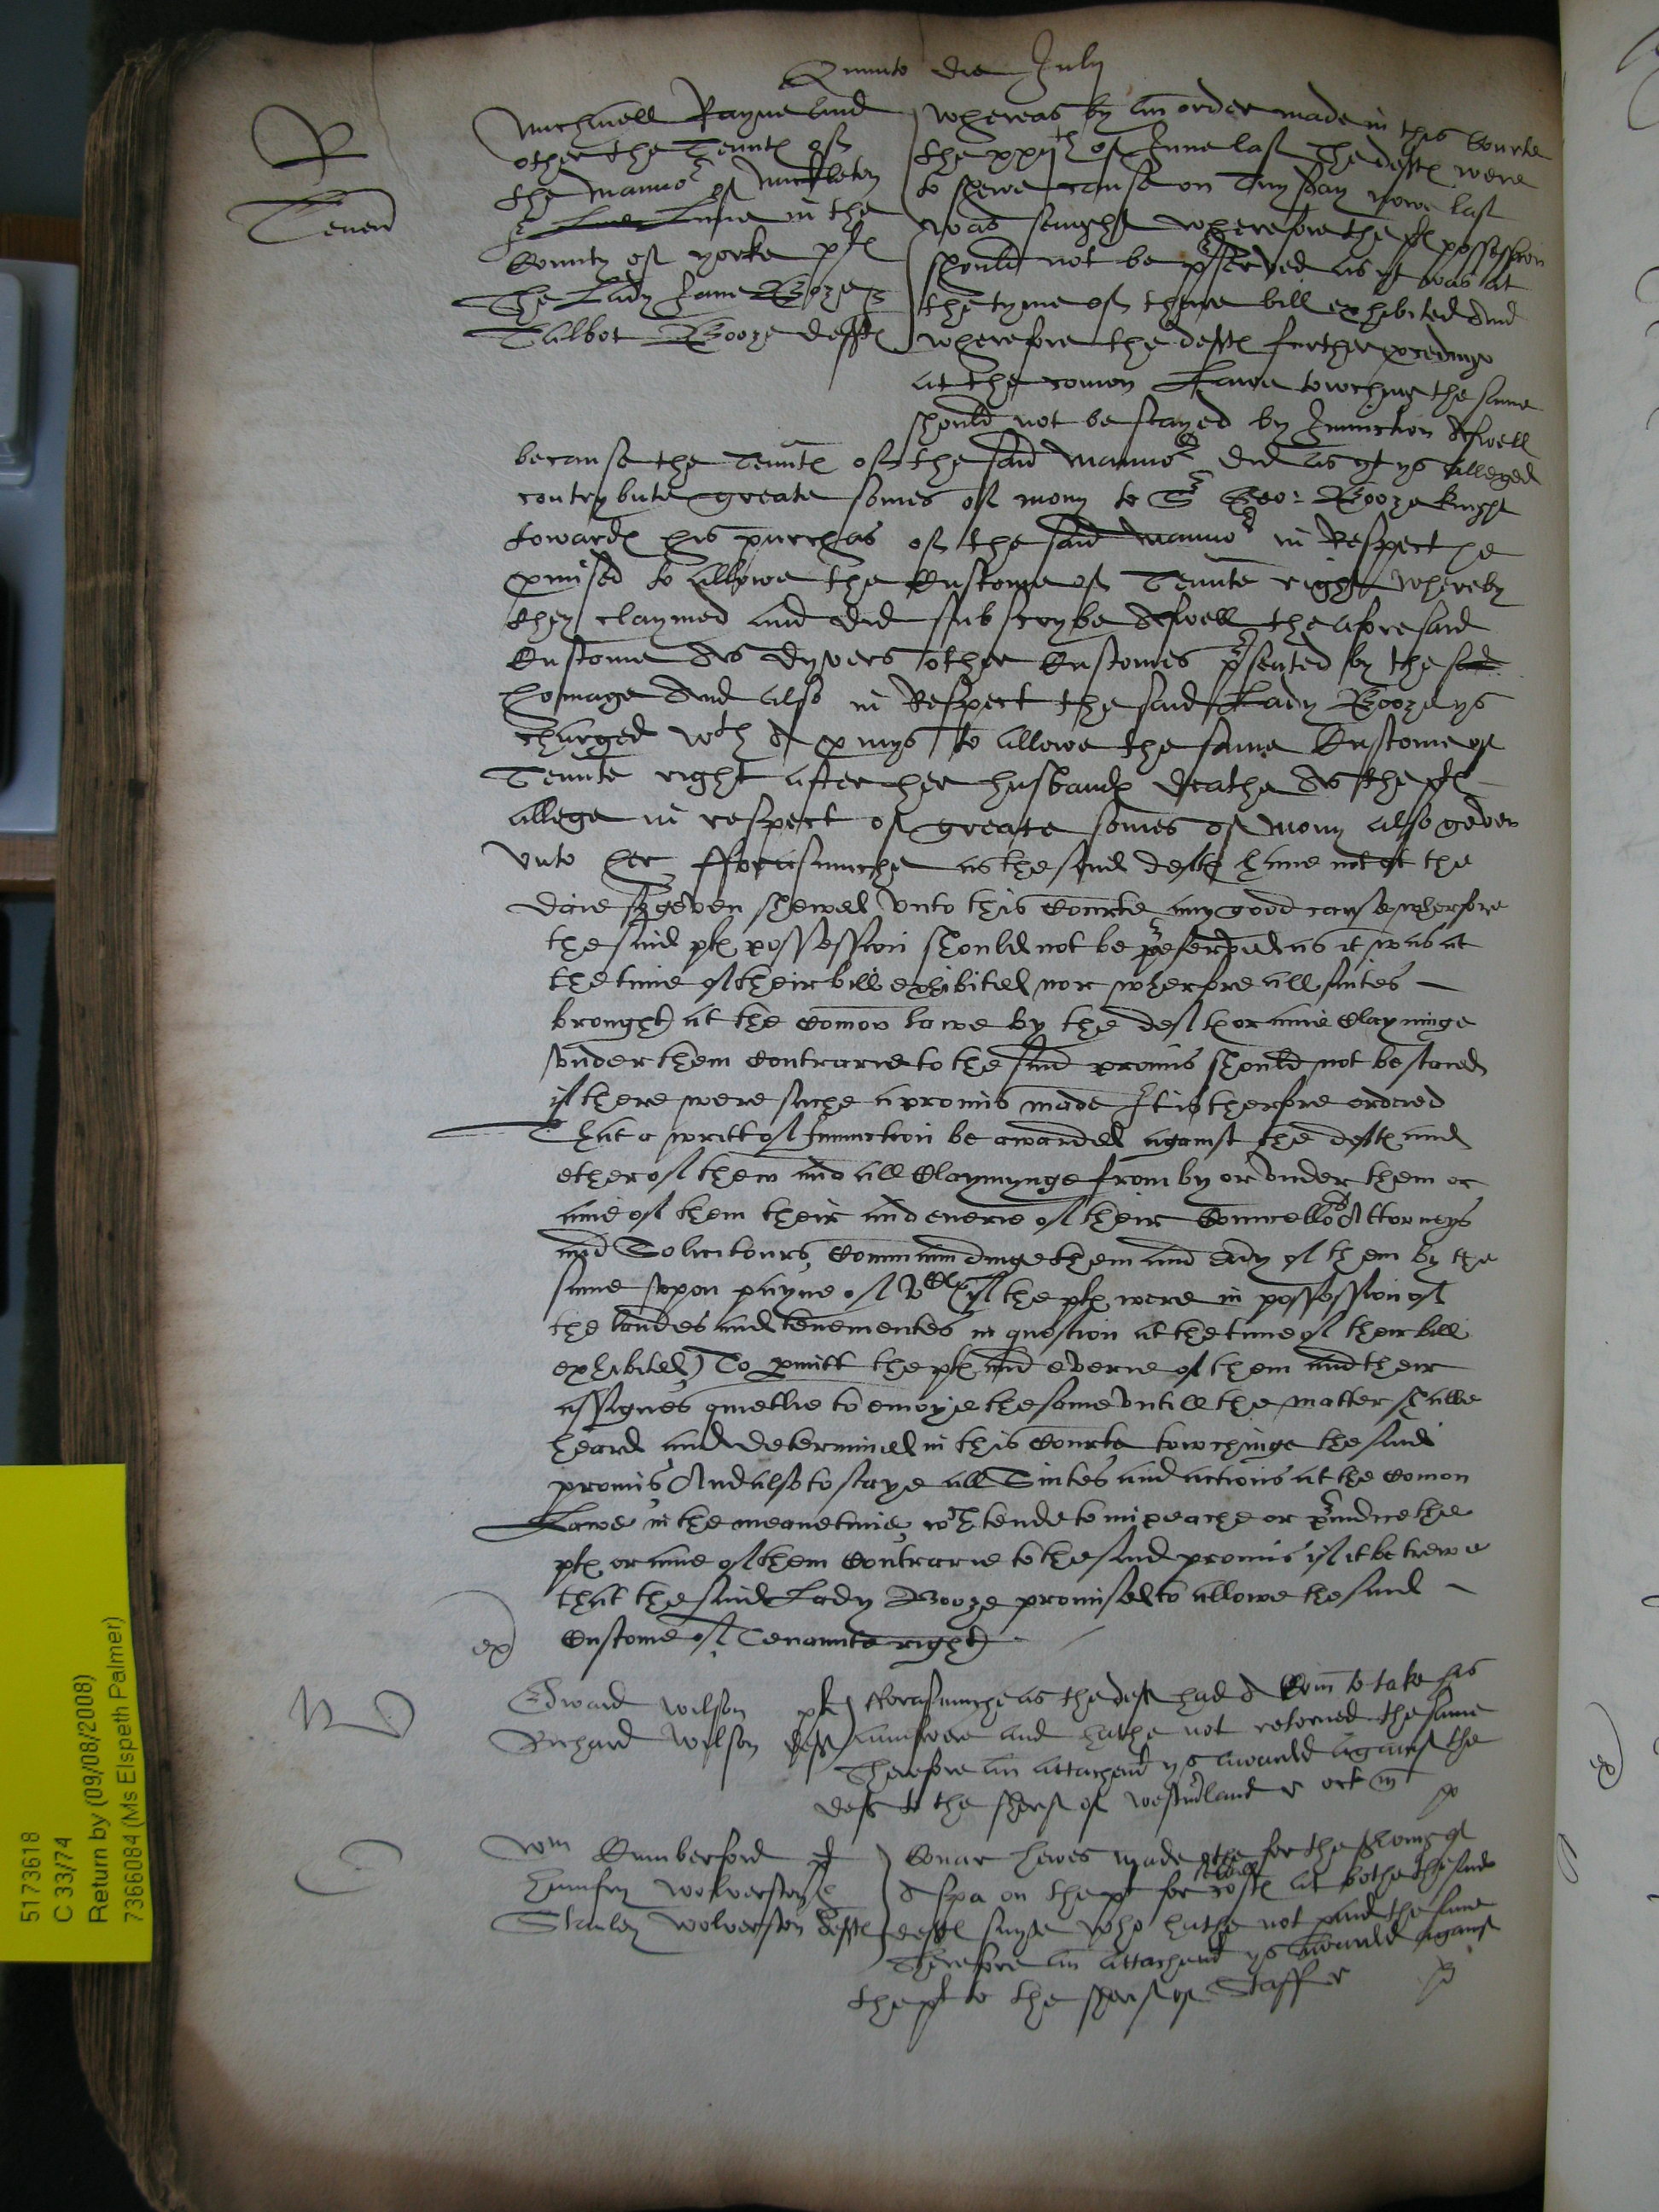 Quinto die July
R
Tenen
Michaell Rayne and
other the Tennts of
the Mannor of Mickleton
in the
County of yorke plts
The Lady Jane Booze
Talbot Booze deffts
whereas by an order made in this Courte
the xxjth of June last the deffts were
to shewe cause on Tuysday nowe last
was senight wherefore the plts possession
should not be pserved as yt was at
the tyme of there bill exhibited And
wherefore the deffts further procedings
at the comon Lawe towching the same
should not be stayed by Iniunction Aswell
because the Tennts of the said Mannor did as yt ys alleged
contrybute greate somes of mony to Sr Geo: Booze knight
towards his purchas of the said Mannor in Respect he
pmised to allowe the Custome of Tennte right whereby
they claymed and did subscrybe Aswell the aforesaid
Custome As dyvers other Customes psented by the
homage And also in Respect the said Lady Booze ys
charged wth A pmys to allowe the same Custome of
Tennte right after her husbands deathe As the plts
allege in respect of greate somes of mony also geven
vnto her fforasmuche as the said defts haue not at the
daie geven shewed vnto this Courte any good cause wherfore
the said plts possession should not be preserved as it was at
the time of their bill exhibited nor wherfore all suites
brought at the Comon lawe by the defts or anie Clayminge
vnder them Contrarie to the said promis should not be staied
if there were suche a promis made It is therfore ordered
That a writt of Iniunction be awarded against the defts and
ether of them and all Claymynge from by or vnder them or
anie of them their and euerie of their Councellors Attorneys
and Solicitours, Commaundinge them and euery of them by the
same vpon payne of if the plts were in possession of
the landes and tenementes in question at the time of their bill
exhibited) To pmitt the plts and everie of them and their
assignes quietlie to enioye the same vntill the matter shalbe
heard and determined in this Courte towchinge the said
promis, And also to staye all Suites and actions at the Comon
Lawe in the meanetime, wch tende to impeache or preiudice the
plts or anie of them Contrarie to the said promis if it be trewe
that the said Lady Booze promised to allowe the said
ex) Custome of Tenaunte right)
Edward Wilson plt
Richard Wilson deft
fforasmuche as the deft had A Com to take his
aunswere and hathe not retorned the same
Therefore an attachmt ys awarded against the
deft to the sheref of Westmland r oct m
Wm Cumberford plt
Humfry Wolverston
Stanley Wolverston deffts
made othe for the showing of
A spa on the plt for costs at bothe the said
deffts suyte who hathe not paid the same
Therefore an attachmt ys awarded against
the plt to the sheref of Staff r
5173618
C 33/74
Return by (09/08/2008)
7366084 (Ms Elspeth Palmer)